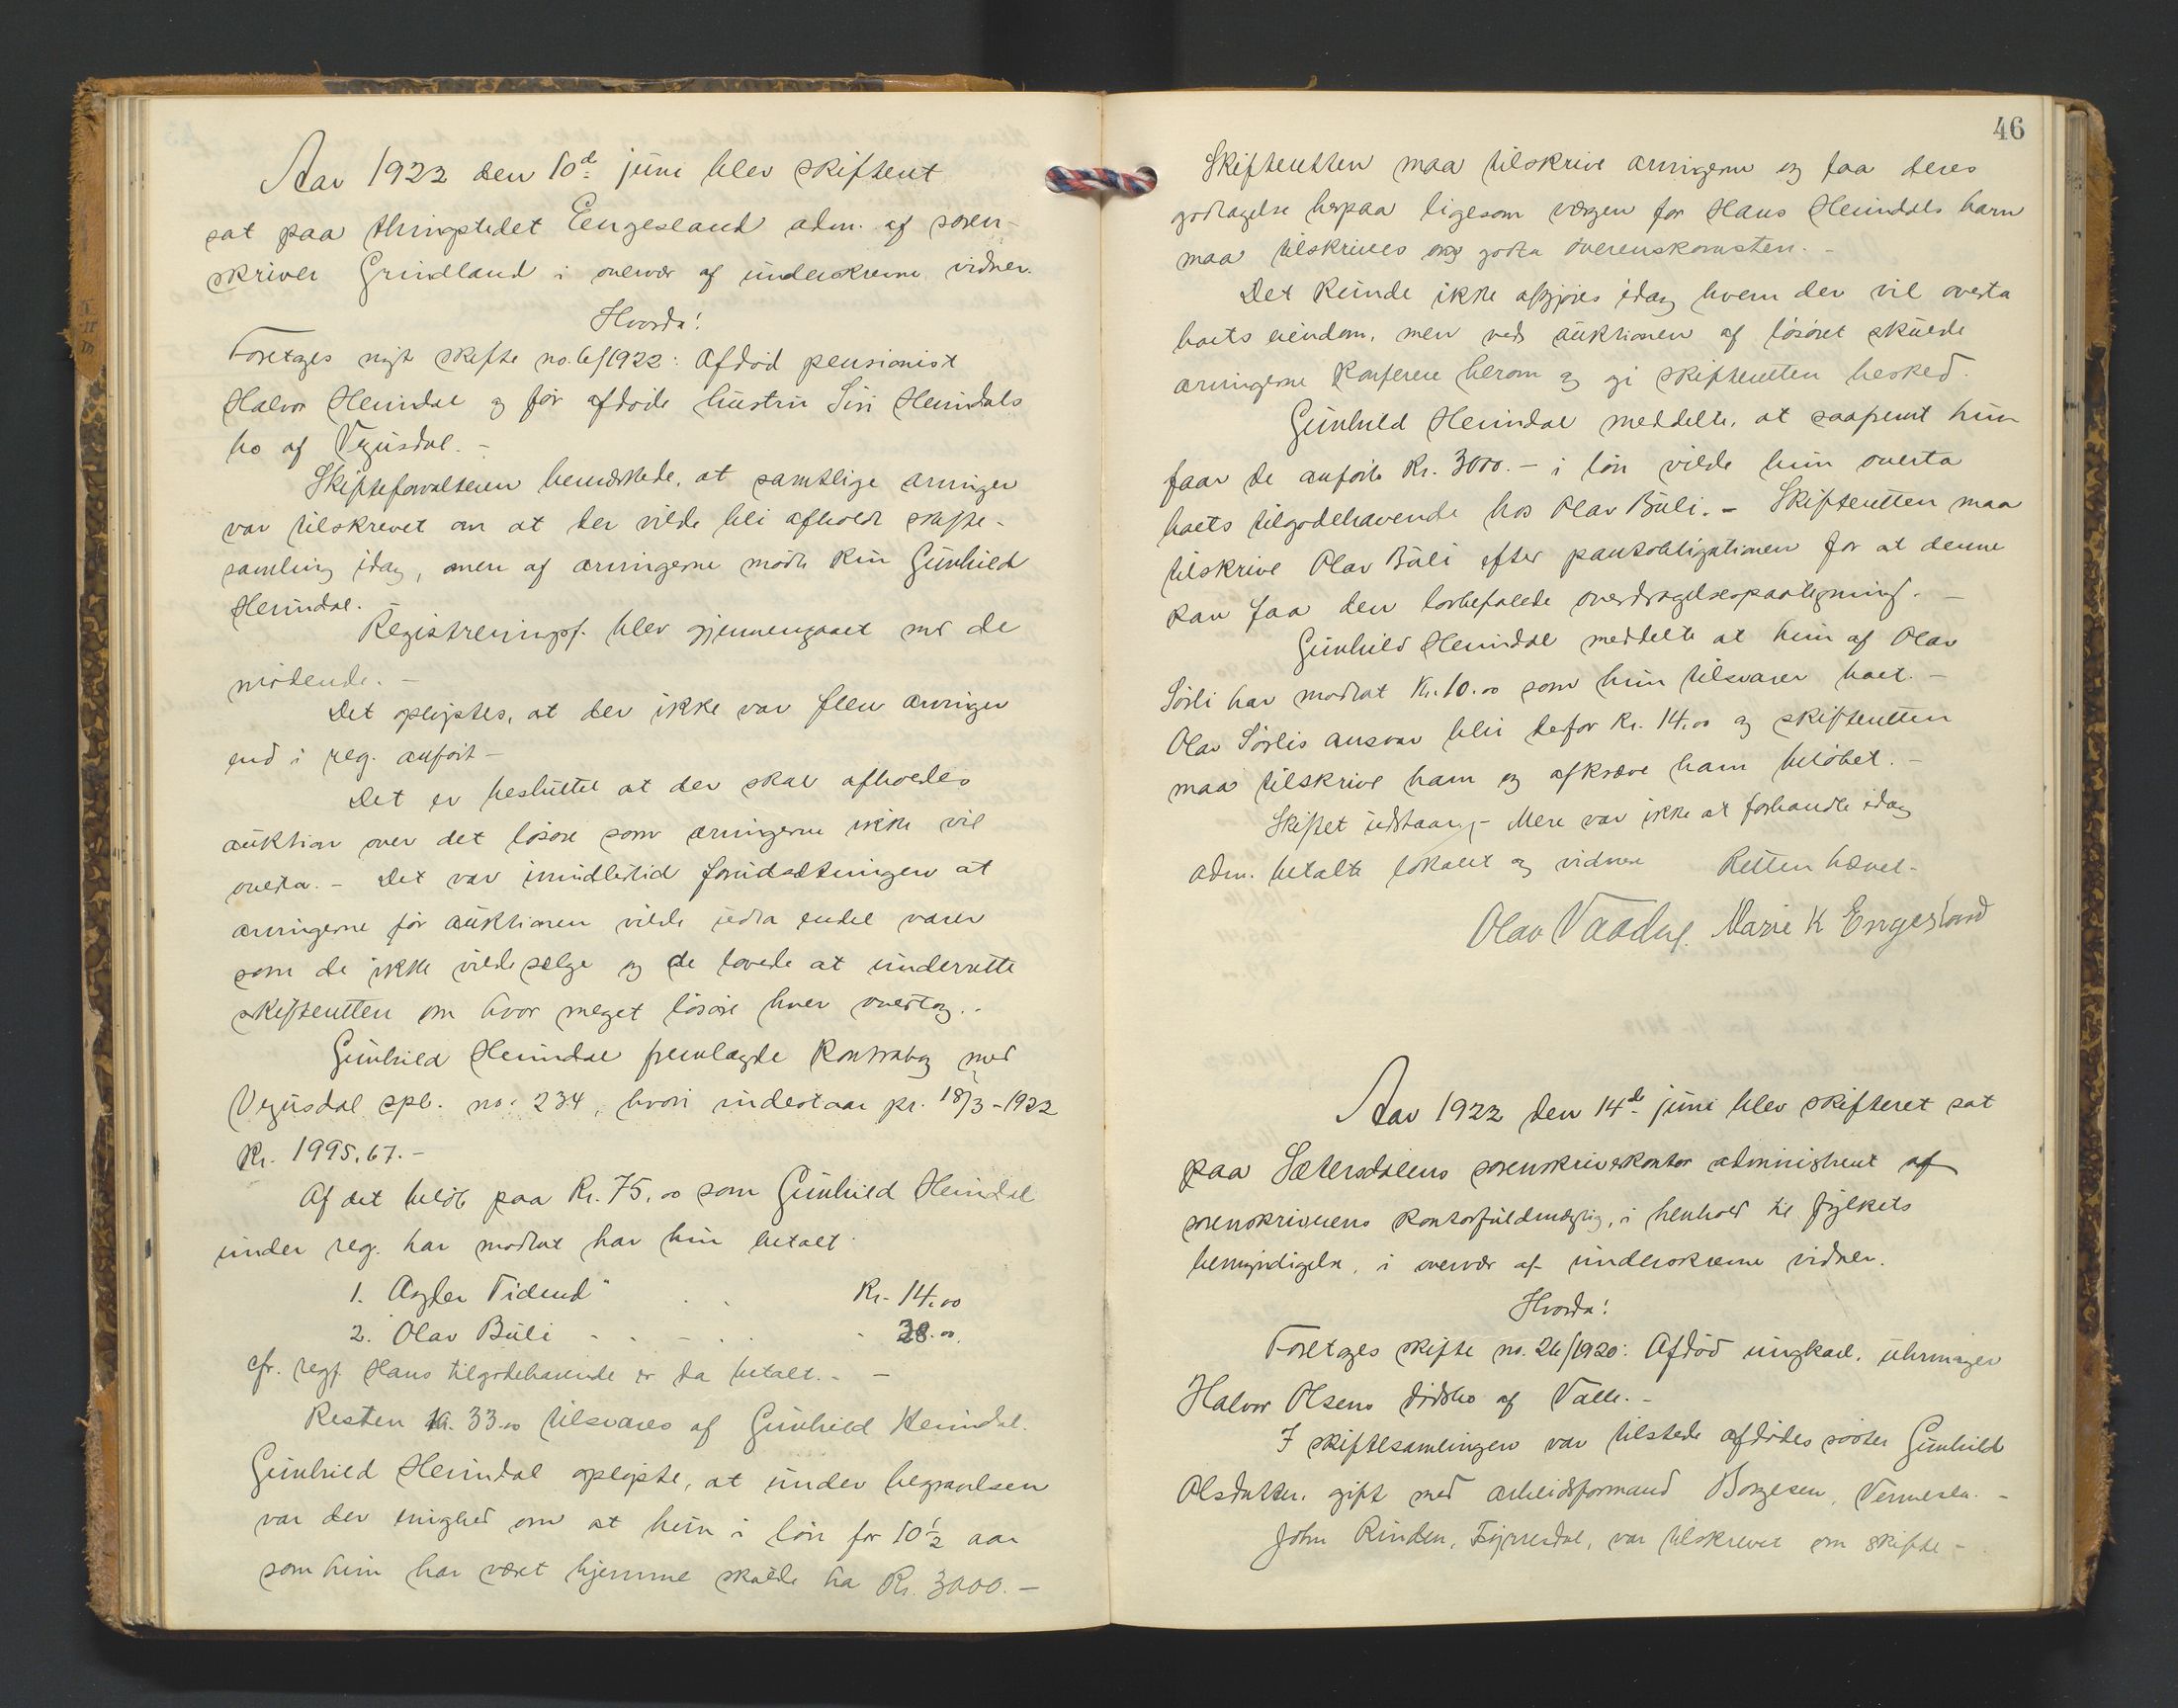 Aar 1922 den 10de juni blev skifteret
sat paa thingstedet Eengesland adm. af soren-
skriver Grindland i overvær af underskrevne vidner.
Hvorda!
Foretoges nyt skifte no. 6/1922: Afdød pensionist
Halvor Heimdal og før afdøde hustru Siri Heimdals
bo af Vegusdal. -
Skifteforvalteren bemærkede, at samtlige arvinger
var tilskrevet om at der vilde bli afholdt skifte-
samling idag, men af arvingerne mødte kun Gunhild
Heimdal. -
Registreringsf. blev gjennemgaaet med de
mødende. -
Det oplystes, at der ikke var flere arvinger
end i reg. anført -
Det er besluttet at der skal afholdes
auktion over det løsøre som arvingerne ikke vil
overta. - Det var imidlertid forudsætningen at
arvingerne før auktionen vilde udta endel varer
som de ikke vilde selge og de lovede at underrette
skifteretten om hvor meget løsøre hver overtog. -
Gunhild Heimdal fremlagde Kontrabog med
Vegusdal spb. no. 234, hvori indestaar pr. 18/3-1922
Kr. 1995,67. -
Af det beløb paa Kr. 75.00 som Gunhild Heimdal
under reg. har modtat har hun betalt
1. Agder Tidend" . . Kr. 14.00
2. Olav Buli - . - . . - 28.00.
cfr. regf. Hans tilgodehavende er da betalt. - -
Resten Kr. 33.00 tilsvares af Gunhild Heimdal.
Gunhild Heimdal oplyste, at under begravelsen
var der enighed om at hun i løn for 10 1/2 aar
som hun har været hjemme skulde ha Kr. 3000. -
46
Skifteretten maa tilskrive arvingerne og faa deres
godtagelse herpaa ligesom vergen for Hans Heimdals barn
maa tilskrives og godta overenskomsten. -
Det kunde ikke afgjøres idag hvem der vil overta
boets eiendom, men ved auktionen af løsøret skulde
arvingerne konferere herom og gi skifteretten besked.
Gunhild Heimdal meddelte, at saafremt hun
faar de anførte Kr. 3000. - i løn vilde hun overta
boets tilgodehavende hos Olav Buli. - Skifteretten maa
tilskrive Olav Buli efter pantobligationen for at denne
kan faa den lovbefalede overdragelsespaategning. -
Gunhild Heimdal meddelte at hun af Olav
Sørli har modtat Kr. 10.00 som hun tilsvarer boet. -
Olav Sørlis ansvar blir derfor Kr. 14.00 og skifteretten
maa tilskrive ham og afkræve ham beløbet. -
Skiftet udstaar, - Mere var ikke at forhandle idag
Adm. betalte lokalet og vidnene Retten hævet -
Olav Marie K Engesland
Aar 1922 den 14de juni blev skifteret sat
paa Sætersdalens sorenskriverkontor administreret af
sorenskriverens kontorfuldmægtig, i henhold til fylkets
bemyndigelse, i overvær af underskrevne vidner.
Hvorda!
Foretoges skifte no. 26/1920: Afdød ungkarl, uhrmager
Halvor Olsens dødsbo af Valle. -
I skiftesamlingen var tilstede afdødes søster Gunhild
Olsdatter, gift med arbeidsformand Borgesen, Vennesla. -
John Rinden, Fyrresdal, var tilskrevet om skifte -